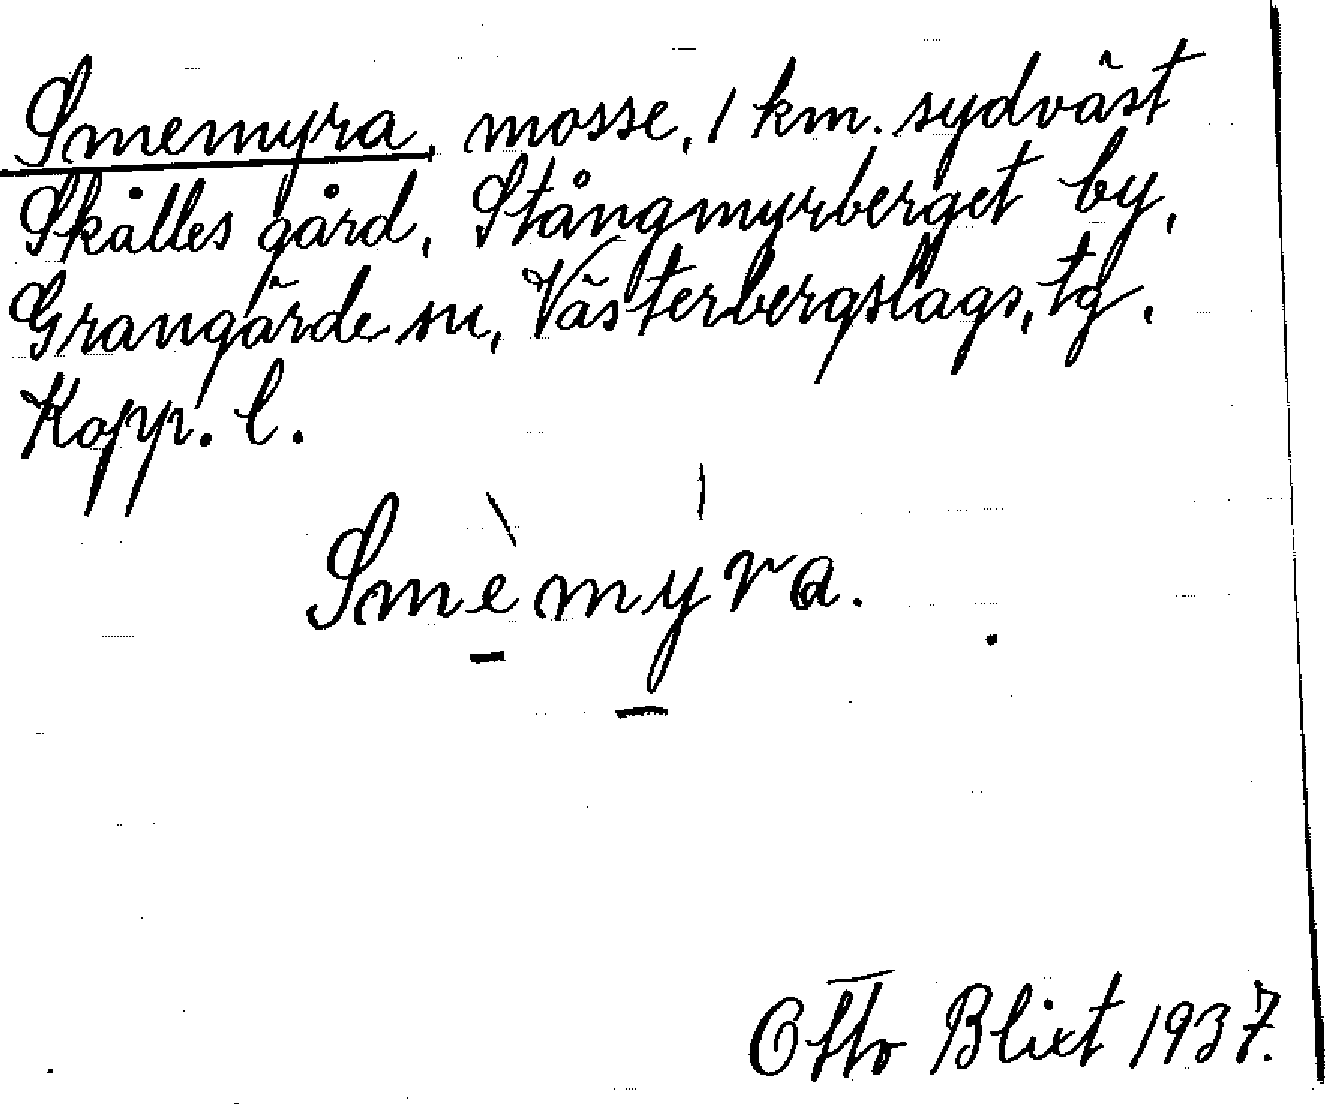 Smemyra, mosse, 1 km. sydväst
Skålles gård, Stångmyrberget by,
Grangärde sn, Västerbergslags, tg.
Kopp. l.
Smèmyra.
Otto Blixt 1937.